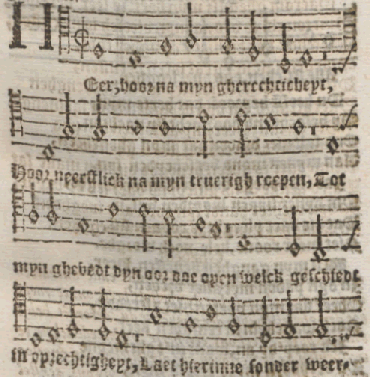 HEer, hoor na myn gherechticheyt,
Hoor neerstlick na myn truerigh roepen, Tot
myn ghebedt dyn oor doe open welck geschiedt
in oprechtigheyt, Laet hierinne sonder weer-